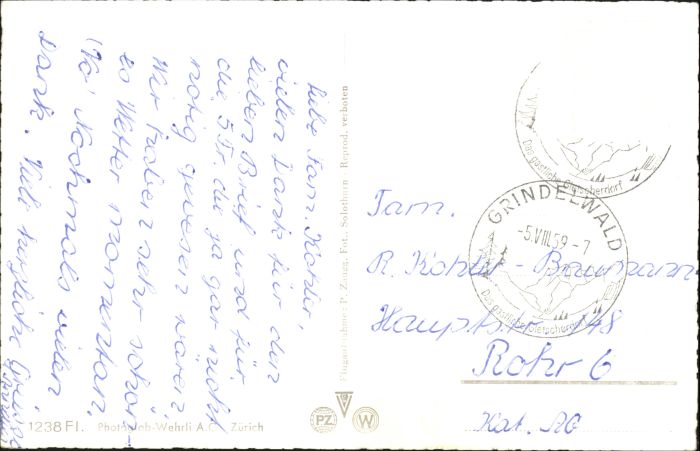 Liebe Fam. Kohler,
vielen Dank für den
lieben Brief und für
die 5 Fr. die ja gar nicht
nötig gewesen wären
Wir haben sehr schön-
es Wetter momentan.
Nochmals vielen
Dank. Viele herzliche Grüsse
Flugaufnahme: P. Zaugg, Fot., Solothurn - Reprod. verboten
Das gastliche Gletscherdorf
GRINDELWALD
-5.VIII.59-7
Das gastliche Gletscherdorf
Fam.
R. Kohler - Baumann
Hauptstr. 48
Rohr 6
Kt. AG
PZ
W
1238 Fl. Photoglob-Wehrli A.G., Zürich